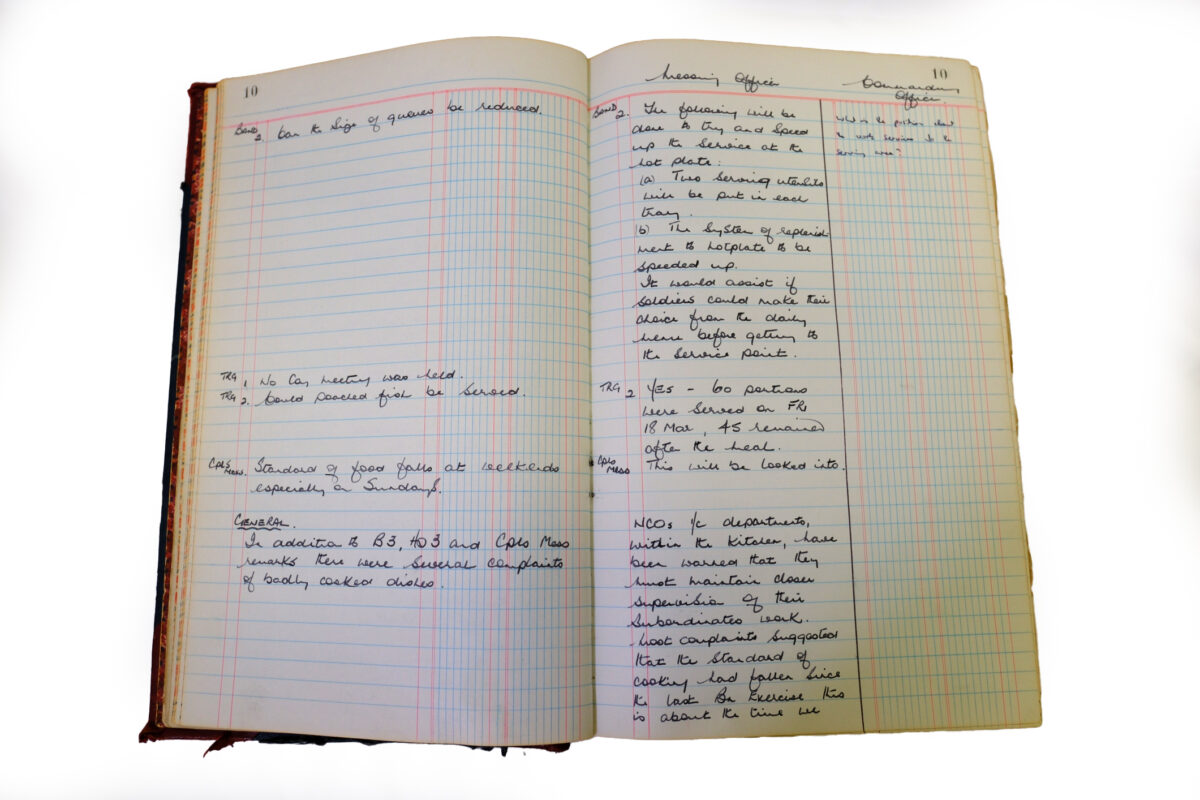 10
Band 2. Can the size of queues be reduced.
TRG 1 No Coy meeting was held.
TRG 2. Could poached fish be served.
Cpls Mess. Standard of food falls at weekends
especially on Sundays.
GENERAL.
In addition to B3, HQ 3 and Cpls Mess
remarks there were several complaints
of badly cooked dishes.
10
Messing Officer
Commanding
Officer
Band 2. The following will be
done to try and speed
up the service at the
hot plate:
(a) Two serving utensils
will be put in each
tray.
(b) The system of replenish
ment to hotplate to be
speeded up.
It would assist if
soldiers could make their
choice from the daily
menu before getting to
the service point.
TRG 2 YES - 60 portions
were served on FRI
18 Mar, 45 remained
after the meal.
Cpls Mess This will be looked into.
NCOs i/c departments,
within the kitchen, have
been warned that they
must maintain closer
supervision of their
subordinates work.
Most complaints suggested
that the standard of
cooking had fallen since
the last Bn Exercise this
is about the time we
What is the position about
the service to the
serving area?